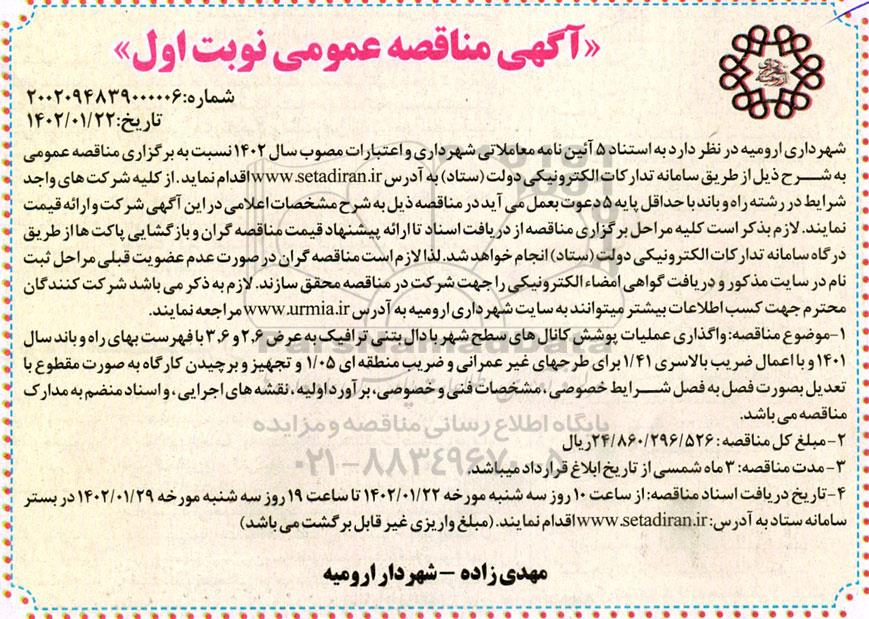 «آگهی مناقصه عمومی نوبت اول»
شماره:۲۰۰۲۰۹۴۸۳۹۰۰۰۰۰۶
تاریخ:۱۴۰۲/۰۱/۲۲
شهرداری ارومیه در نظر دارد به استناد ۵ آئین نامه معاملاتی شهرداری و اعتبارات مصوب سال ۱۴۰۲ نسبت به برگزاری مناقصه عمومی
به شرح ذیل از طریق سامانه تدارکات الکترونیکی دولت (ستاد) به آدرس www.setadiran.ir اقدام نماید. از کلیه شرکت های واجد
شرایط در رشته راه و باند با حداقل پایه ۵ دعوت بعمل می آید در مناقصه ذیل به شرح مشخصات اعلامی در این آگهی شرکت و ارائه قیمت
نمایند. لازم بذکر است کلیه مراحل برگزاری مناقصه از دریافت اسناد تا ارائه پیشنهاد قیمت مناقصه گران و بازگشایی پاکت ها از طریق
درگاه سامانه تدارکات الکترونیکی دولت (ستاد) انجام خواهد شد. لذا لازم است مناقصه گران در صورت عدم عضویت قبلی مراحل ثبت
نام در سایت مذکور و دریافت گواهی امضاء الکترونیکی را جهت شرکت در مناقصه محقق سازند. لازم به ذکر می باشد شرکت کنندگان
محترم جهت کسب اطلاعات بیشتر میتوانند به سایت شهرداری ارومیه به آدرس www.urmia.ir مراجعه نمایند.
۱-موضوع مناقصه: واگذاری عملیات پوشش کانال های سطح شهر با دال بتنی ترافیک به عرض ۲,۶ و ۳,۶ با فهرست بهای راه و باند سال
۱۴۰۱ و با اعمال ضریب بالاسری ۱/۴۱ برای طرحهای غیر عمرانی و ضریب منطقه ای ۱/۰۵ و تجهیز و برچیدن کارگاه به صورت مقطوع با
تعدیل بصورت فصل به فصل شرایط خصوصی، مشخصات فنی و خصوصی، برآورد اولیه، نقشه های اجرایی، و اسناد منضم به مدارک
مناقصه می باشد.
پایگاه اطلاع رسانی مناقصه و مزایده
۲-مبلغ کل مناقصه: ۲۴/۸۶۰/۲۹۶/۵۲۶ریال
۳-مدت مناقصه: ۳ ماه شمسی از تاریخ ابلاغ قرارداد میباشد.
۴-تاریخ دریافت اسناد مناقصه: از ساعت ۱۰ روز سه شنبه مورخه ۱۴۰۲/۰۱/۲۲ تا ساعت ۱۹ روز سه شنبه مورخه ۱۴۰۲/۰۱/۲۹ در بستر
سامانه ستاد به آدرس: www.setadiran.ir اقدام نمایند. (مبلغ واریزی غیر قابل برگشت می باشد)
مهدی زاده - شهردار ارومیه